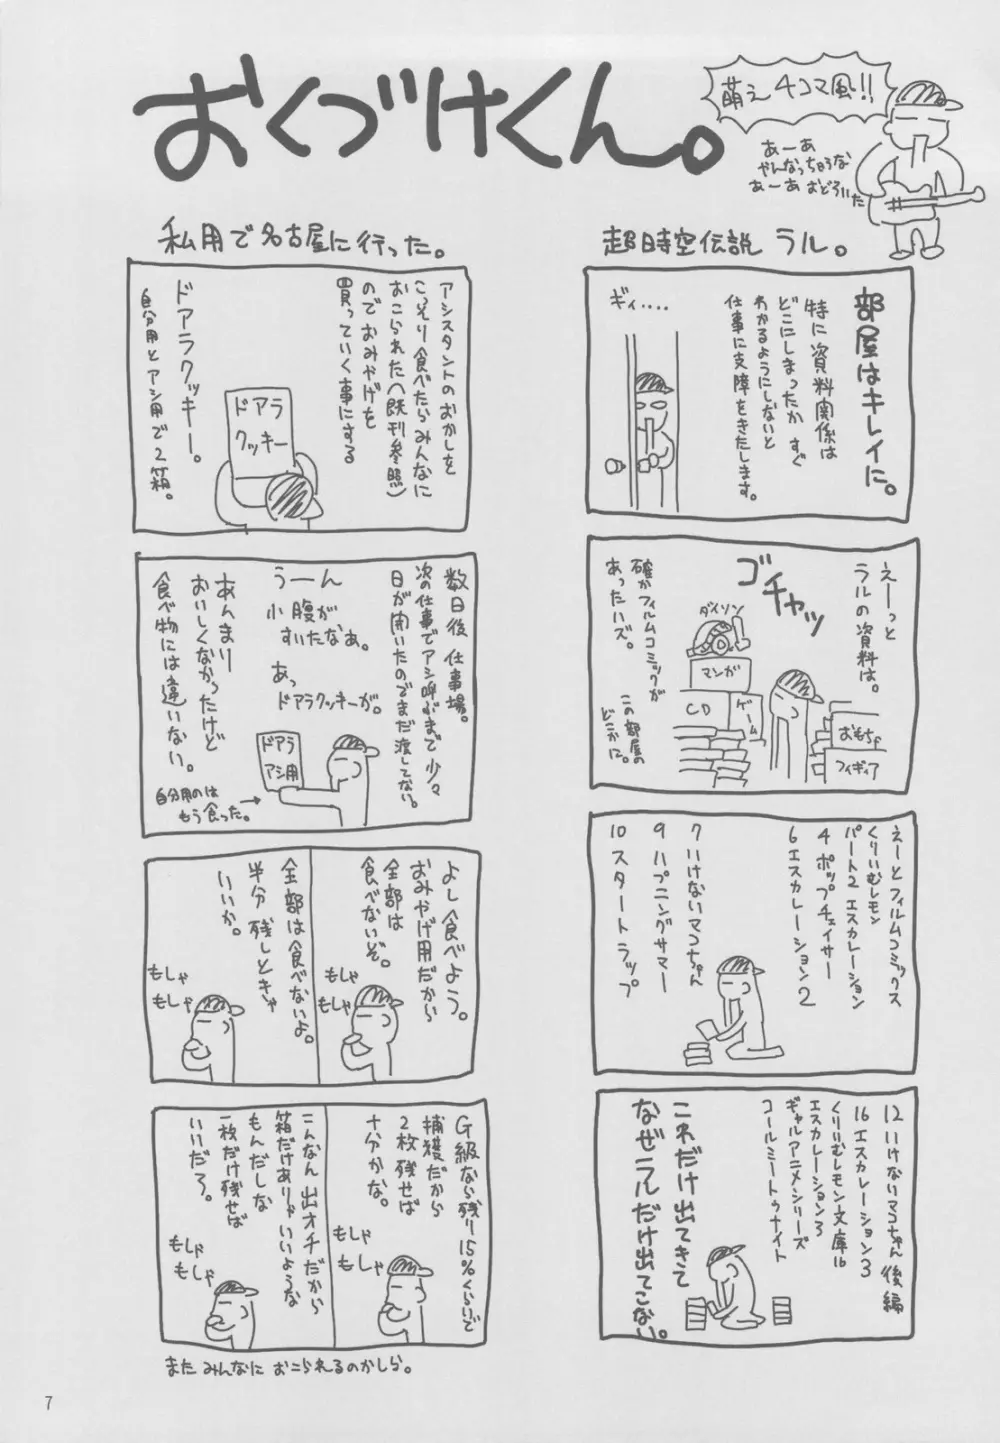 おくづけくん。
萌え4コマ風!!
あーあ
やんなっちゃうな
あーあ おどろいた
超時空伝説 ラル。
部屋はキレイに。
特に資料関係は
どこにしまったか すぐ
わかるようにしないと
仕事に支障をきたします。
ギィ....
えーっと
ラルの資料は。
ゴチャッ
確かフィルムコミックが
あったハズ。
この部屋の
どこかに。
ダイソン
マンガ
CD
ゲーム
おもちゃ
フィギィア
えーとフィルムコミックス
くりいむレモン
パート2 エスカレーション
4 ポップチェイサー
6 エスカレーション2
7 いけないマコちゃん
9 ハプニングサマー
10 スタートラップ
12 いけないマコちゃん 後編
16 エスカレーション3
くりいむレモン文庫16
エスカレーション3
ギャルアニメシリーズ
コールミートゥナイト
これだけ出てきて
なぜラルだけ出てこない。
私用で名古屋に行った。
アシスタントのおかしを
こっそり食べたらみんなに
おこられた(既刊参照)
のでおみやげを
買っていく事にする
ドアラ
クッキー
ドアラクッキー。
自分用とアシ用で2箱。
数日後 仕事場。
次の仕事でアシ呼ぶまで少々
日が開いたのでまだ渡してない。
うーん
小腹が
すいたなぁ。
あっ
ドアラクッキーが。
ドアラ
アシ用
あんまり
おいしくなかったけど
食べ物には違いない。
自分用のは
もう食った。
よし食べよう。
おみやげ用だから
全部は
食べないぞ。
もしゃ
もしゃ
全部は食べないよ。
半分 残しときゃ
いいか。
もしゃ
もしゃ
G級なら残り15%くらいで
捕獲だから
2枚残せば
十分かな。
もしゃ
もしゃ
こんなん 出オチだから
箱だけありゃいいような
もんだしな
一枚だけ残せば
いいだろ。
もしゃ
もしゃ
また みんなに おこられるのかしら。
7